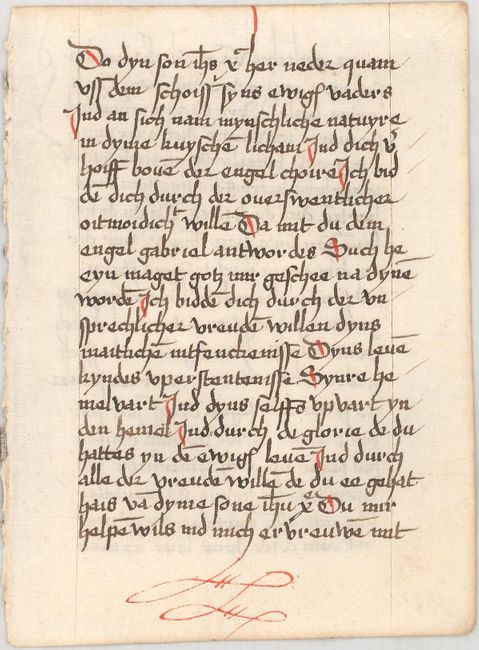 Do dyn son ih̄s xp̄ her neder quam
vss dem schoiss syns ewigē vaders
Ind an sich nam mynschliche natuyre
in dyme kuyschen licham Ind dich v̄
hoiff bouē der engel choire Ich bid
dē dich durch der ouerswentlicher
oitmoidich̄ willē Da mit du dem
engel gabriel antwordes Such he
eyn maget gotz mir geschee na dynē
wordē Ich biddē dich durch der vn
sprechlicher vreudē willen dyns
maitlichē intfenckenisse Dyns leuē
kyndes vperstentenisse Synre he
melvart Ind dyns selffs vpvart yn
den hemel Ind durch de glorie de du
hattes yn dē ewigē leuē Ind durch
alle der vreudē willē de du ee gehat
hais vā dyme sone ih̄u xp̄e Du mir
helpē wils ind mich ervreuwē mit